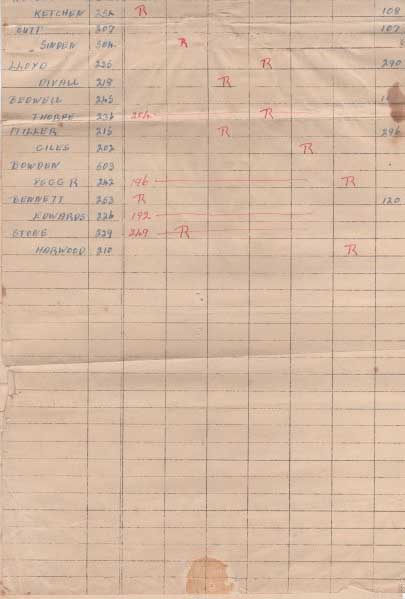 KETCHEN 254 R 108
CUTT 307 107
SINDEN 304 R
LLOYD 226 R 290
DIVALL 218 R
BEDWELL 245
THORPE 236 254 R
MILLER 216 R 296
GILES 202 R
BOWDEN 603
242 196 R
BENNETT 253 R 120
EDWARDS 226 192
STONE 229 249 R
HARWOOD 210 R